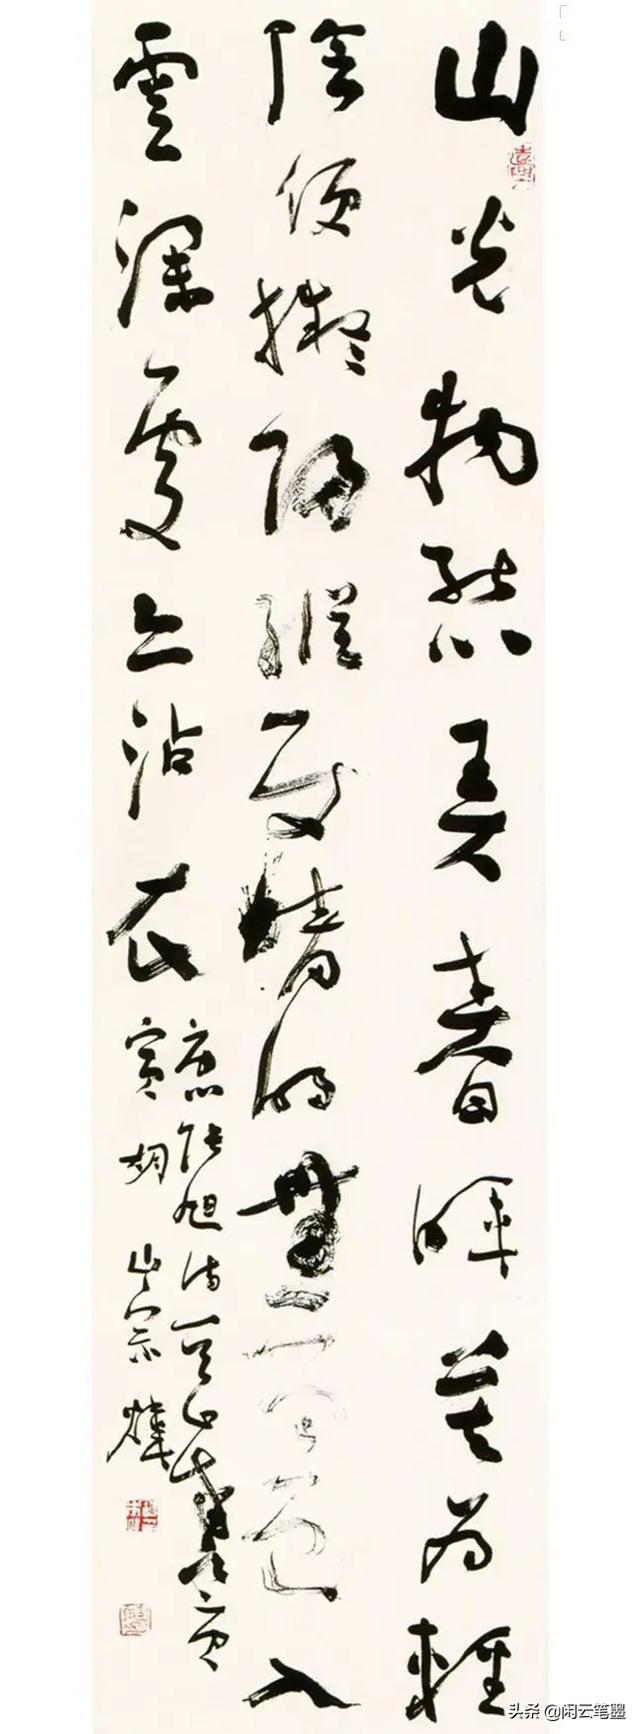 山光物態弄春暉莫為輕
陰便擬歸縱使晴明無雨色入
雲深處亦沾衣
張旭詩
头条 @闲云笔墨